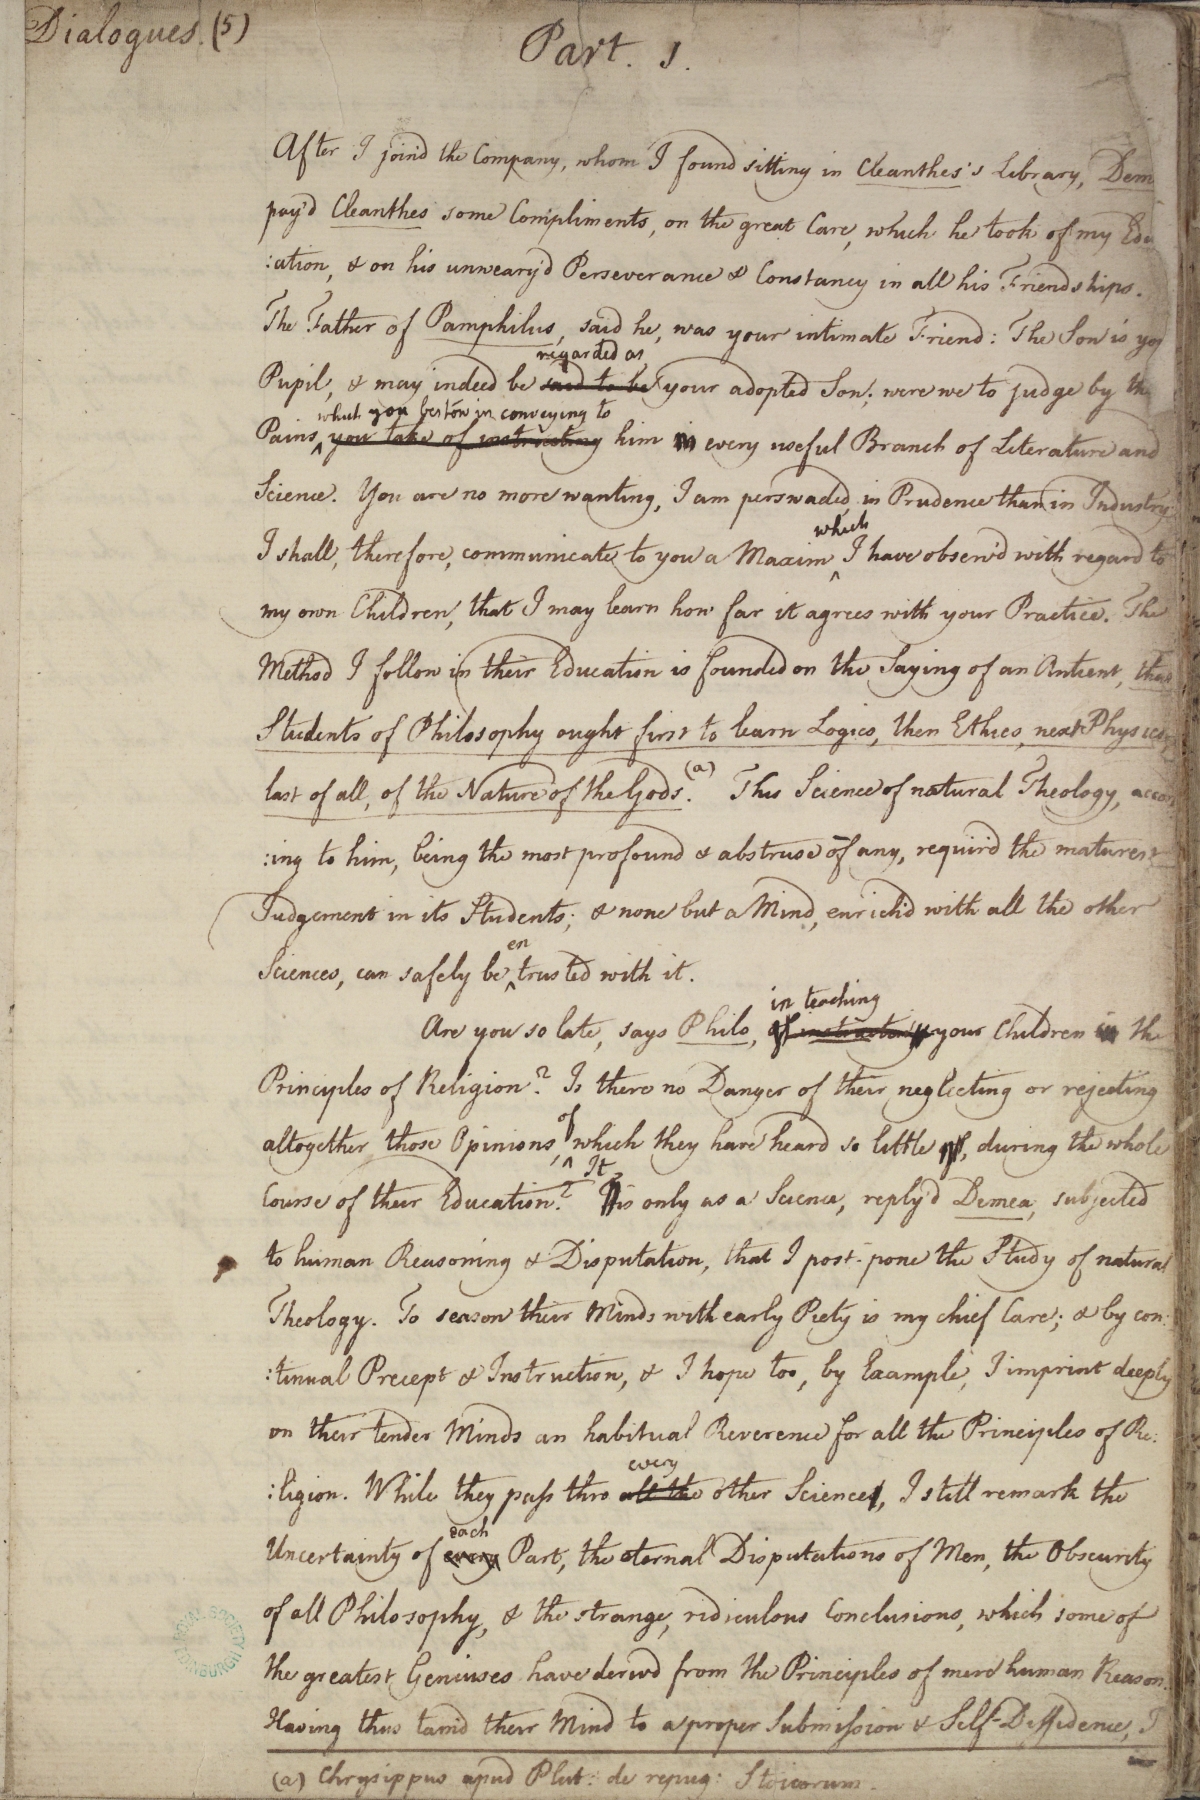 Dialogues. (5)
Part. 1.
After I join'd the Company, whom I found sitting in Cleanthes's Library, Dem
pay'd Cleanthes some Compliments, on the great Care, which he took of my Edu
:ation, & on his unweary'd Perseverance & Constancy in all his Friendships.
The Father of Pamphilus, said he, was your intimate Friend: The Son is you
regarded as
Pupil, & may indeed be said to be your adopted Son; were we to judge by the
what you bestow in conveying to
Pains, you take of instructing him in every useful Branch of Literature and
Science. You are no more wanting, I am perswaded, in Prudence than in Industry
which
I shall, therefore, communicate to you a Maxim ^ I have observ'd with regard to
my own Children, that I may learn how far it agrees with your Practice. The
Method I follow in their Education is founded on the Saying of an Antient, that
Students of Philosophy ought first to learn Logics, then Ethics, next Physics,
last of all, of the Nature of the Gods. (a) This Science of natural Theology, accor
:ing to him, being the most profound & abstruse of any, requir'd the maturest
Judgement in its Students; & none but a Mind, enrich'd with all the other
en
Sciences, can safely be ^ trusted with it.
in teaching
Are you so late, says Philo, of instructing your Children in the
Principles of Religion? Is there no Danger of their neglecting or rejecting
altogether those Opinions, ^ of which they have heard so little of, during the whole
It
Course of their Education? is only as a Science, reply'd Demea, subjected
to human Reasoning & Disputation, that I post-pone the Study of natural
Theology. To season their Minds with early Piety is my chief Care; & by con:
:tinual Precept & Instruction, & I hope too, by Example, I imprint deeply
on their tender Minds an habitual Reverence for all the Principles of Re:
every
:ligion. While they pass thro all the other Science, I still remark the
each
Uncertainty of every Part, the eternal Disputations of Men, the Obscurity
of all Philosophy, & the strange, ridiculous Conclusions, which some of
the greatest Geniuses have deriv'd from the Principles of mere human Reason.
Having thus tam'd their Mind to a proper Submission & Self-Diffidence, I
(a) Chrysippus apud Plut: de repug: Stoicorum.
ROYAL SOCIETY EDINBURGH